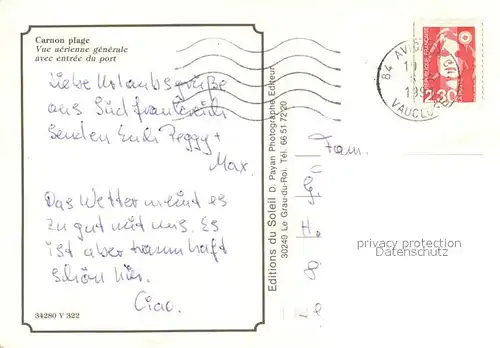 Carnon plage
Vue aérienne générale
avec entrée du port
Liebe Urlaubsgrüße
aus Südfrankreich
senden Euch Peggy +
Max.
Das Wetter meint es
zu gut mit uns. Es
ist aber traumhaft
schön hier.
Ciao.
34280 V 322
Editions du Soleil D. Payan Photographe Editeur
30240 Le Grau-du-Roi. Tél. 66 51 72 20
Fam.
privacy protection
Datenschutz
84 AVIGNON
VAUCLUSE
2,30